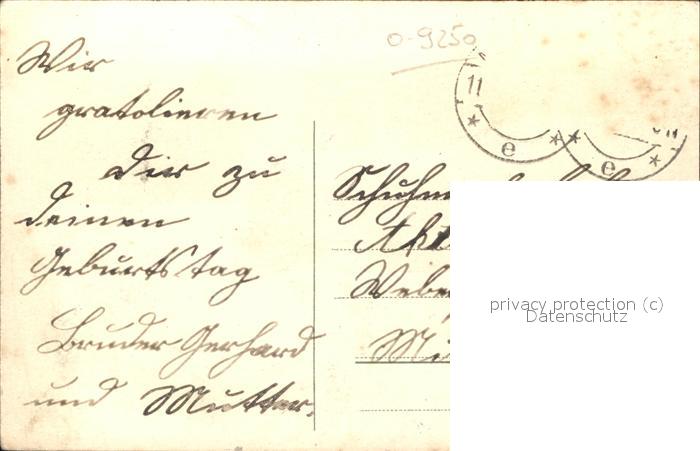 0-9250
Wir
gratolieren
Dir zu
deinen
Geburtstag
Bruder Gerhard
und Mutter.
11
* e * * e *
Webe
Mi
privacy protection (c)
Datenschutz